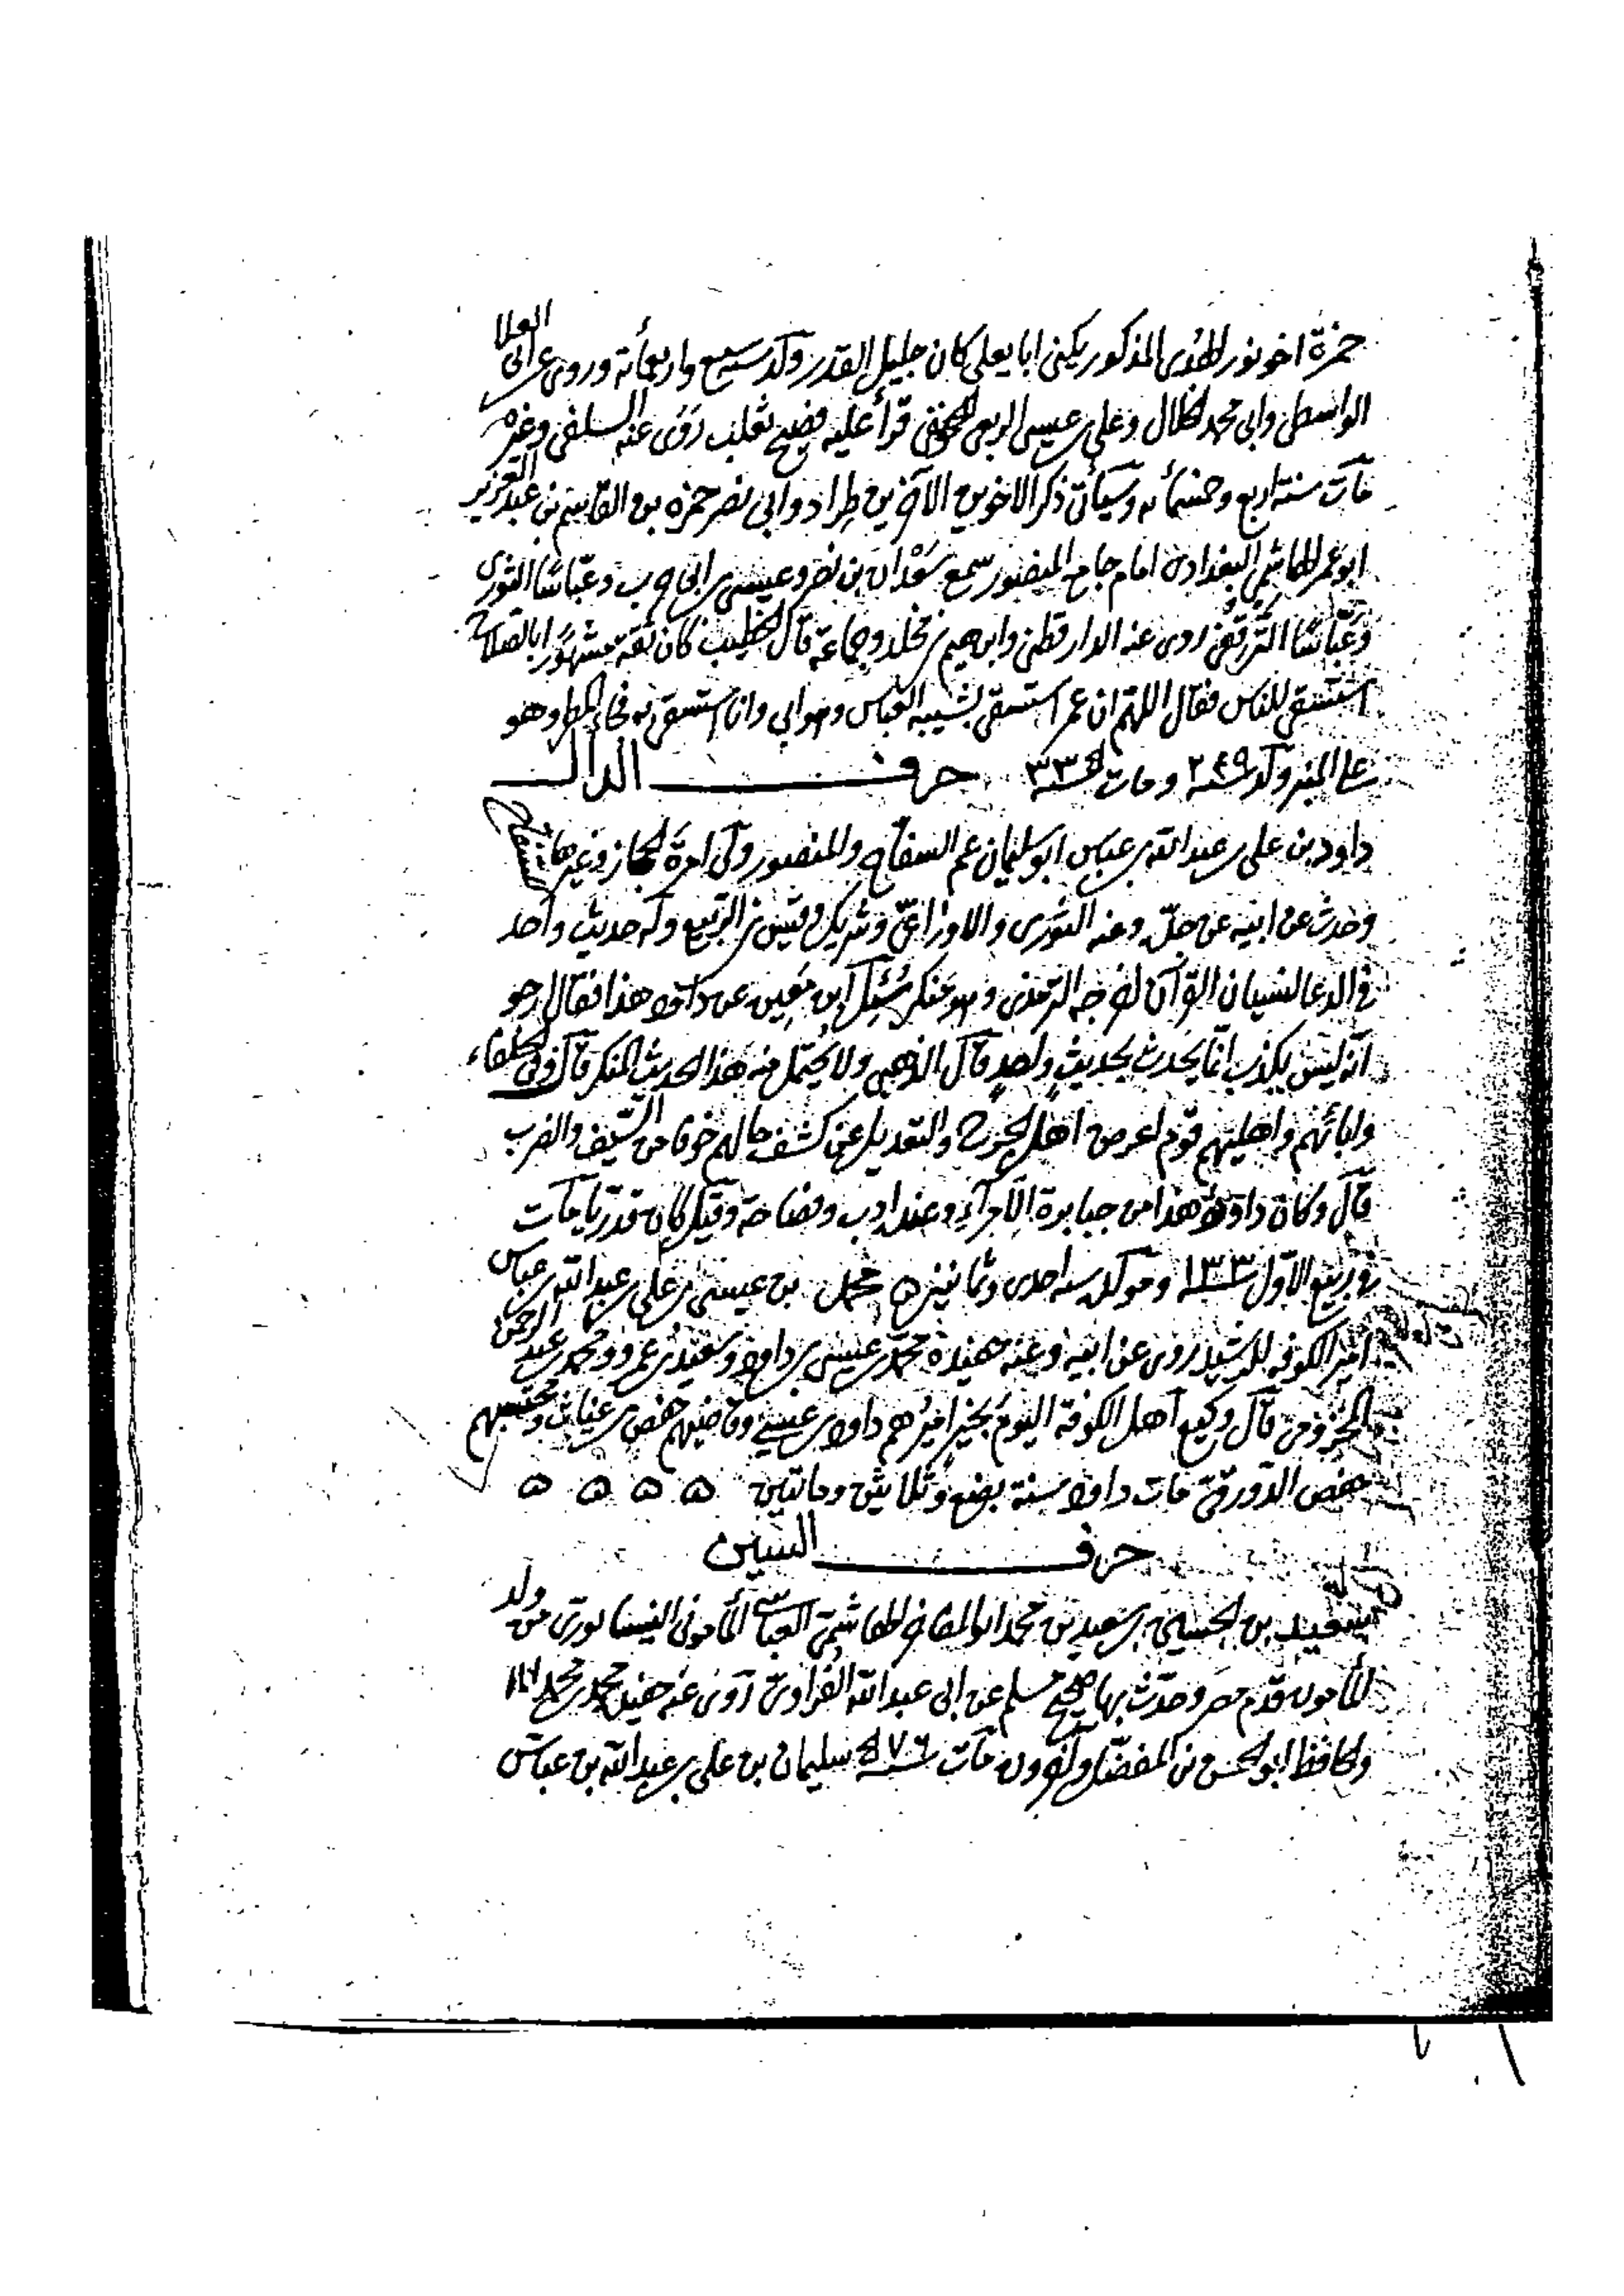 حمزة اخو نور الهدى المذكور يكنى ابا يعلى كان جليل القدر ولد سنة سبع واربعمائة وروى عن ابى العلا
الواسطى وابى محمد الخلال وعلى بن عيسى الربعى النحوى قرأ عليه فصيح ثعلب روى عنه السلفى وغيره
مات سنة اربع وخمسمائة وسيأتى ذكر الاخوين الآخرين طراد وابى نصر حمزه بن القاسم بن عبد العزيز
ابو عمر الهاشمى البغدادى امام جامع المنصور سمع سعدان بن نصر وعيسى بن ابى حرب وعباسا الدورى
وعباسا الترقفى روى عنه الدارقطنى وابراهيم بن مخلد وجماعة قال الخطيب كان ثقة مشهورا بالصلاح
استسقى للناس فقال اللهم ان عمر استسقى بشيبه العباس وهو ابى وانا استسقى به فجاء المطر وهو
على المنبر ولد سنة ٢٤٩ ومات سنة ٣٣٥ حرف الدال
داود بن على بن عبد الله بن عباس ابو سليمان عم السفاح والمنصور ولى امرة الحجاز وغيرها للسفاح
وحدث عن ابيه عن جده وعنه الثورى والاوزاعى وشريك وقيس بن الربيع وله حديث واحد
فى الدعا لنسيان القرآن اخرجه الترمذى وهو منكر سئل ابن معين عن داود هذا فقال ارجو
انه ليس يكذب انما يحدث بحديث واحد قال الذهبى ولا يحتمل منه هذا الحديث المنكر قال وفى الخلفاء
وابائهم واهليهم قوم اعرض اهل الجرح والتعديل عن كشف حالهم خوفا من السيف والضرب
قال وكان داود هذا من جبابرة الامراء وعنده ادب وفصاحة وقيل كان قدريا مات
فى ربيع الاول سنة ١٣٣ ومولده سنة احدى وثمانين ه محمد بن عيسى بن على بن عبد الله بن عباس
امير الكوفه للرشيد روى عن ابيه وعنه حفيده محمد بن عيسى بن داود وسعيد بن عمرو ومحمد بن عبد الرحمن
المخزومى قال وكيع اهل الكوفة اليوم بخير اميرهم داود بن عيسى وقاضيهم حفص بن غياث ومحتسبهم
حفص الدورقى مات داود سنة بضع وثلاثين ومائتين ه ه ه ه
حرف السين
سعيد بن الحسين بن سعيد بن محمد ابو المفاخر الهاشمى العباسى المأمونى النيسابورى من ولد
المأمون قدم مصر وحدث بها بصحيح مسلم عن ابى عبد الله الفراوى روى عنه حفيده محمد بن محمد
والحافظ ابو الحسن بن المفضل واخرون مات سنة ٥٧٦ سليمان بن على بن عبد الله بن عباس